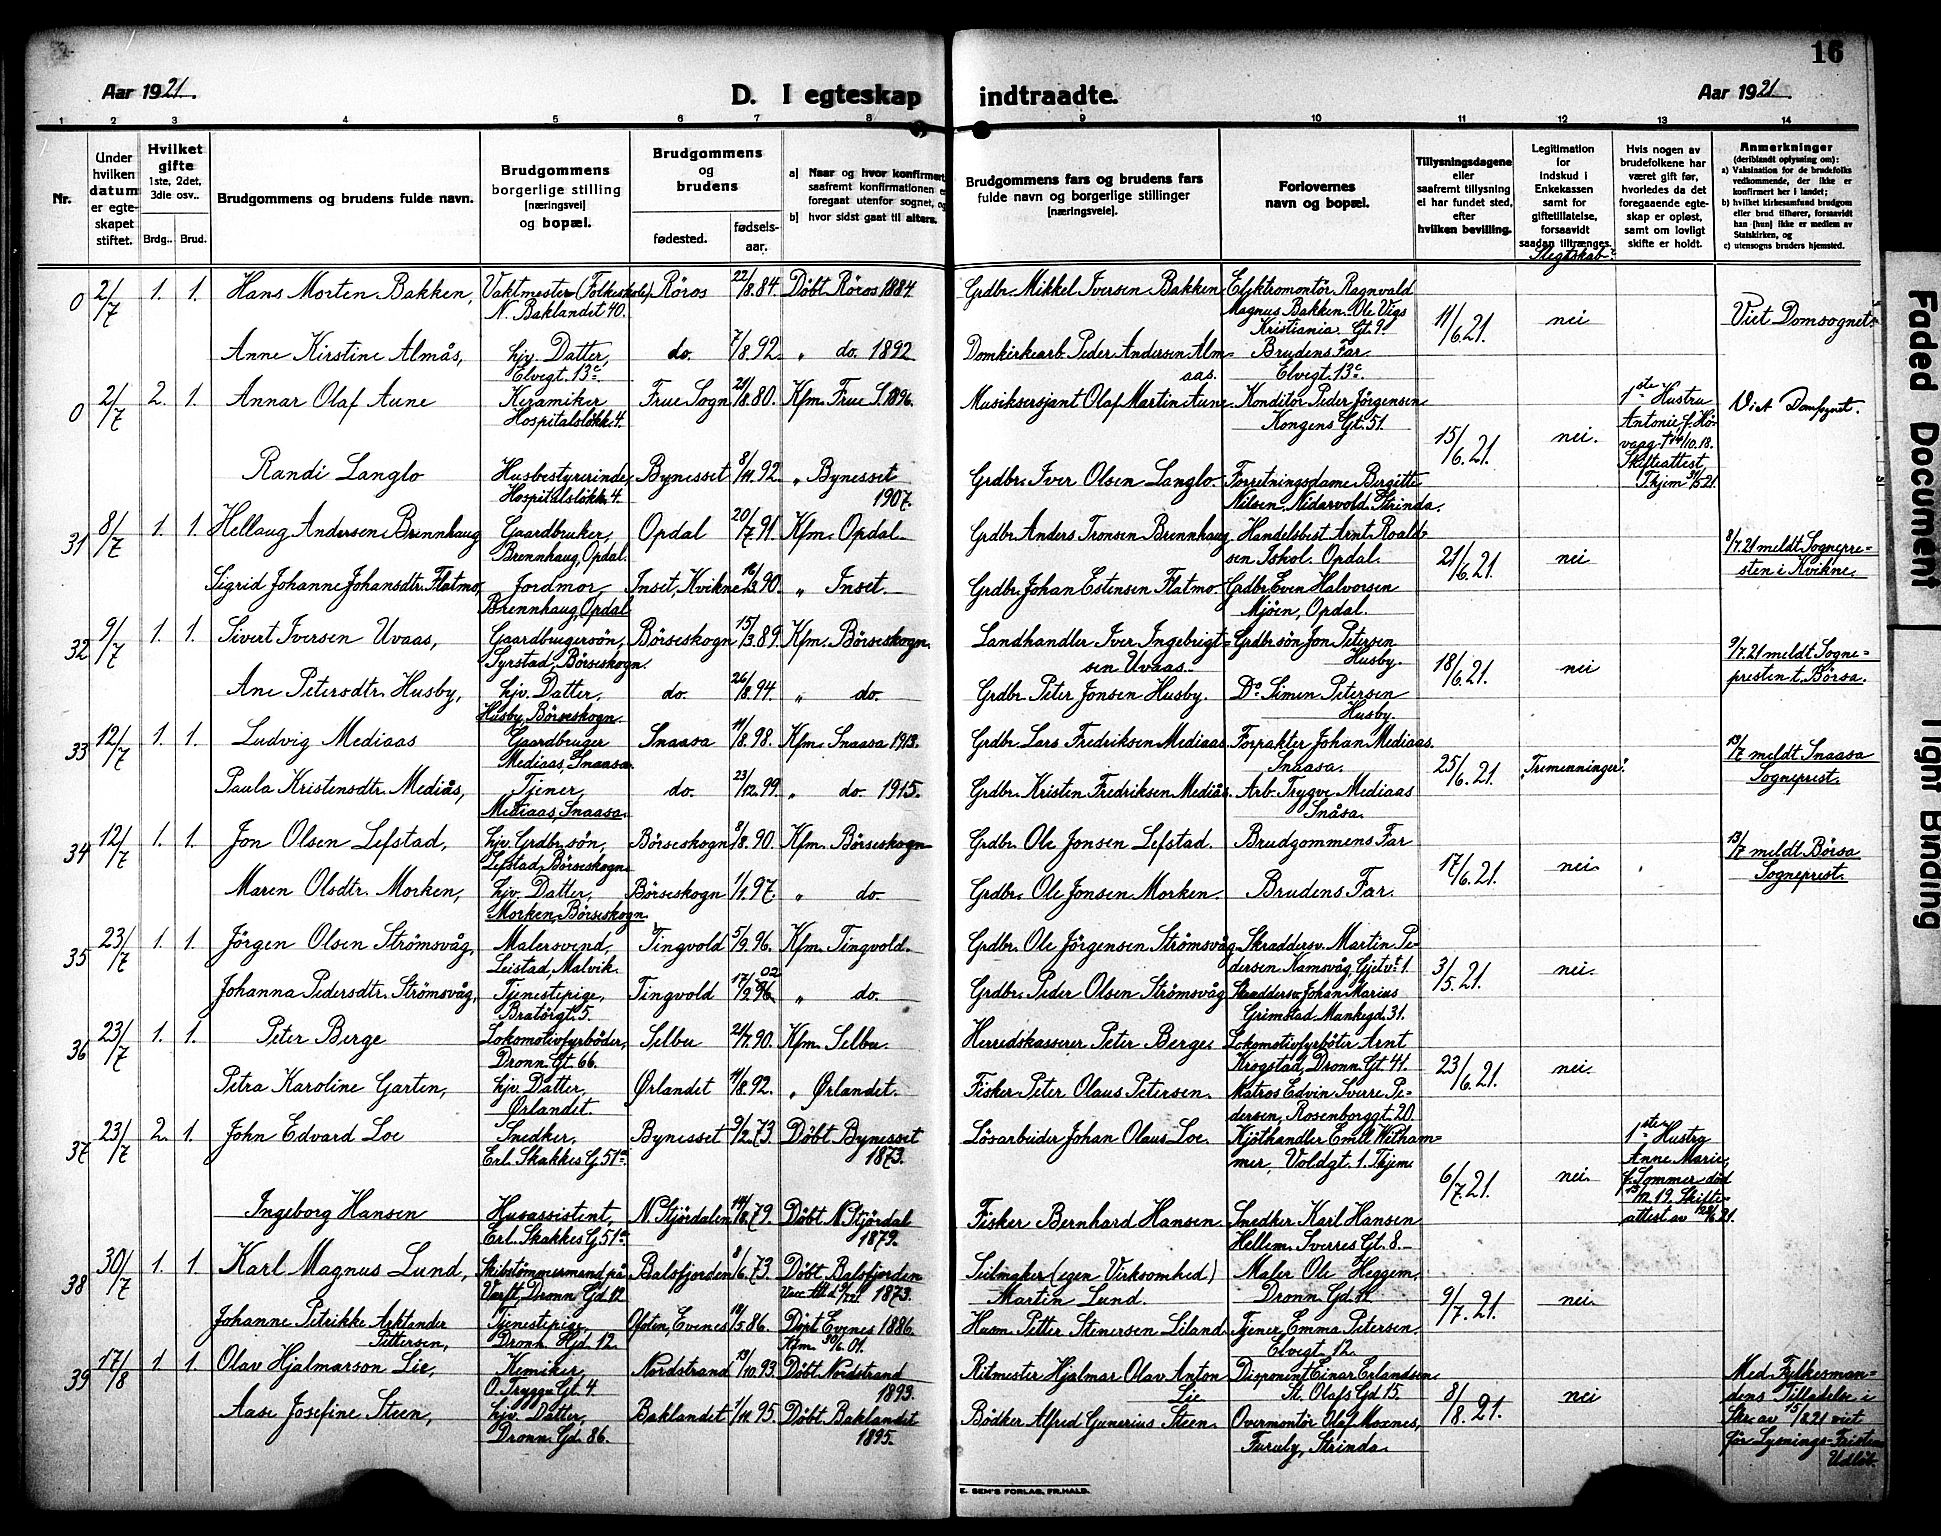 16
Aar 1921.
D. I egteskap indtraadte.
Aar 1921
1 2 3 4 5 6 7 8 9 10 11 12 13 14
Nr.
Under hvilken datum er egteskapet stiftet.
Hvilket gifte 1ste, 2det, 3die osv..
Brdg.. Brud.
Brudgommens og brudens fulde navn.
Brudgommens borgerlige stilling [næringsvei] og bopæl.
Brudgommens og brudens
fødested.
fødselsaar.
a) Naar og hvor konfirmert, saafremt konfirmationen er foregaat utenfor sognet, og
b) hvor sidst gaat til alters.
Brudgommens fars og brudens fars fulde navn og borgerlige stillinger [næringsveie].
Forlovernes navn og bopæl.
Tillysningsdagene eller saafremt tillysning ei har fundet sted, efter hvilken bevilling.
Legitimation for indskud i Enkekassen samt for giftetillatelse, forsaavidt saadan tiltrænges.
Slegtskab?
Hvis nogen av brudefolkene har været gift før, hvorledes da det foregaaende egteskap er opløst, samt om lovligt skifte er holdt.
Anmerkninger (deriblandt oplysning om):
a) Vaksination for de brudefolks vedkommende, der ikke er konfirmert her i landet;
b) hvilket kirkesamfund brudgom eller brud tilhører, forsaavidt han [hun] ikke er medlem av Statskirken, og
c) utensogns bruders hjemsted.
0 2/7 1. 1. Hans Morten Bakken, Vaktmester (Folkeskole) Röros 22/8.84 Döbt Röros 1884 Grdbr. Mikkel Iversen Bakken Elektromontör Ragnvald 11/6.21. nei Viet Domsognet.
N. Baklandet 40. Magnus Bakken. Ole Vigs
Kristiania. Gt. 9
Anne Kirstine Almås, hjv. Datter, do. 7/8.92 „ do. 1892 Domkirkearb. Peder Andersen Alm- Brudens Far
Elvegt. 13c. aas. Elvegt. 13c.
0 2/7 2. 1. Annar Olaf Aune Keramiker Frue Sogn 21/8.80. Kfm. Frue S. 1896. Musiksersjant Olaf Martin Aune Konditor Peder Jörgensen 15/6.21. nei. 1ste Hustru Viet Domsognet.
Hospitalslökk. 4. Kongens Gt. 51. Antonie f. Hör-
vaag † 10.18.
Randi Langlo Husbestyrerinde Bynesset 8/11.92. „ Bynesset Grdbr. Iver Olsen Langlo Forretningsdame Birgitte Skifteattest
Hospitalslökk. 4. 1907. Nilsen, Nidarvold Strinda. Thjem 5.21
31 8/7 1. 1. Hellaug Andersen Brennhaug Gaardbruker, Opdal 20/7.91. Kfm. Opdal. Grdbr. Anders Tronsen Brennhaug Handelsbest. Arnt Roald- 21/6.21. nei 8/7.21 meldt Sognepre-
Brennhaug, Opdal. sen Iskol. Opdal. sten i Kvikne.
Sigrid Johanne Johansdtr. Flatmo, Jordmor Inset, Kvikne 16/3.90. „ Inset. Grdbr. Johan Estensen Flatmo. Grdbr. Even Halvorsen
Brennhaug, Opdal Mjöen, Opdal.
32 9/7 1. 1. Sivert Iversen Uvaas, Gaardbrugersön, Börseskogn 15/3.89. Kfm. Börseskogn. Landhandler Iver Ingebrigt- Grdbr.sön Jon Petersen 18/6.21. nei 9/7.21 meldt Sogne-
Syrstad, Börseskogn. sen Uvaas. Husby. presten t. Börsa.
Ane Petersdtr. Husby, hjv. Datter, do. 26/8.94. „ do. Grdbr. Peter Jonsen Husby. Do Simen Petersen
Husby, Börseskogn. Husby.
33 12/7 1. 1. Ludvig Mediaas Gaardbruger Snaasa 11/8.98. Kfm. Snaasa 1913. Grdbr. Lars Fredriksen Mediaas. Forpakter Johan Mediaas 25/6.21. „Tremenninger". 13/7 meldt Snaasa
Mediaas, Snaasa. Snaasa. Sogneprest.
Paula Kristensdtr. Mediås, Tjener, do. 23/12.99 „ do. 1915. Grdbr. Kristen Fredriksen Mediås. Arb. Trygve Mediaas
Mediaas, Snaasa. Snåsa.
34 12/7 1. 1. Jon Olsen Lefstad, hjv. Grdbr. sön, Börseskogn 8/8.90. Kfm. Börseskogn Grdbr. Ole Jonsen Lefstad. Brudgommens Far 17/6.21. nei. 13/7 meldt Börsa
Lefstad, Börseskogn. Sogneprest.
Maren Olsdtr. Morken, hjv. Datter, Börseskogn 1/1.97. „ do Grdbr. Ole Jonsen Morken. Brudens Far.
Morken, Börseskogn.
35 23/7 1. 1. Jörgen Olsen Strömsvåg, Malersvend, Tingvold 5/9.96. Kfm. Tingvold. Grdbr. Ole Jörgensen Strömsvåg Skraddersv. Martin Pe- 3/5.21. nei.
Leistad, Malvik. dersen Kamsvåg, Gjetvt. 1.
Johanna Pedersdtr. Strömsvåg, Tjenestepige, Tingvold 17/2.96 02 „ do. Grdbr. Peder Olsen Strömsvåg Skraddersv. Johan Marius
Bratörgt. 5. Grimstad, Munkegd. 31.
36 23/7 1. 1. Peter Berge Lokomotivfyrböder, Selbu 21/7.90. Kfm. Selbu. Herredskasserer Peter Berge. Lokomotivfyrböter Arnt 23/6.21. nei.
Dronn. Gt. 66. Krogstad, Dronn. Gt. 41.
Petra Karoline Garten, hjv. Datter, Ørlandet 11/8.92. „ Ørlandet. Fisker Peter Olaus Petersen. Matros Edvin Sverre Pe-
Ørlandet. dersen, Rosenborggt. 20
37 23/7 2. 1. John Edvard Loe Snedker, Bynesset 9/2.73. Döbt Bynesset Lösarbeider Johan Olaus Loe. Kjöthandler Emil Witham- 6/7.21. nei. 1ste Hustru
Erl. Skakkes G. 51a. 1873. mer, Voldgt. 1. Thjem Anne Marie,
f. Sommer död
Ingeborg Hansen Husassistent, N. Stjördalen 14/8.79. Döbt N. Stjördal Fisker Bernhard Hansen Snedker Karl Hansen 19. Skifte-
Erl. Skakkes G. 51a 1879. Hellem. Sverres Gt. 8. attest av 6.21.
38 30/7 1. 1. Karl Magnus Lund, Skibstömmermand på Balsfjorden 8/6.73. Döbt Balsfjorden Seilmaker (egen Virksomhed) Maler Ole Heggem, 9/7.21. nei.
Verft, Dronn. Gd. 12 1873. Martin Lund. Dronn. Gd. 11
Johanne Petrikke Arktander Tjenestepige, Ofoten, Evenes 18/5.86. Döpt Evenes 1886. Husm. Petter Stenersen Liland Tjener Emma Petersen.
Pettersen, Dronn. Hjd. 12. Kfm. 30/6.01. Elvegt. 12.
39 17/8 1. 1. Olav Hjalmarson Lie, Kemiker, Nordstrand 13/10.93. Döbt Nordstrand Ritmester Hjalmar Olav Anton Disponent Einar Erlandsen 8/8.21. nei Med Fylkesman-
O. Trygg. Gt. 4. 1893. Lie St. Olafs Gd 15. dens Tilladelse i
Aase Josefine Steen, hjv. Datter, Baklandet 1/11.95. Döbt Baklandet Bödker Alfred Gunerius Steen. Overmontör Olaf Moxnes, Skr. av 15/8 21 viet
Dronn. Gd. 86. 1895. Furuly, Strinda. för Lysnings-Fristens
Udlöb.
E. SEM'S FORLAG, FR.HALD.
Faded Document
Tight Binding